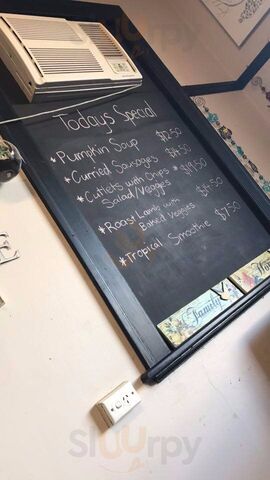 Todays Special
* Pumpkin Soup $12.50
* Curried Sausages $14.50
* Cutlets with Chips * $19.50
Salad/Veggies
* Roast Lamb with $14.50
Baked Veggies
* Tropical Smoothie $7.50
Family
Sluurpy